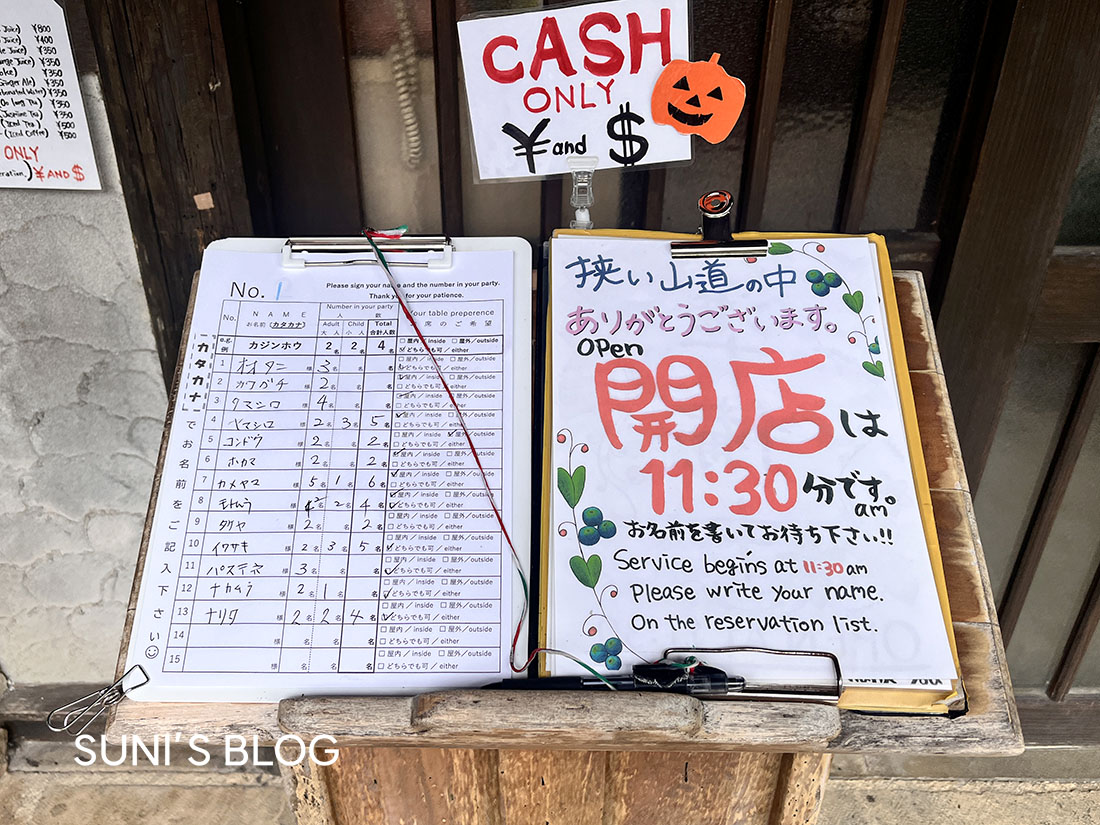 Juice) ¥800
Juice) ¥400
Juice) ¥350
Juice) ¥350
¥350
Ginger Ale) ¥350
Water) ¥350
Tea) ¥350
(Jasmine Tea) ¥350
(Iced Tea) ¥500
(Iced Coffee) ¥500
ONLY
¥ AND $
CASH
ONLY
¥ and $
No. 1
Please sign your name and the number in your party.
Thank you for your patience.
No. NAME Number in your party Your table preperence
お名前(カタカナ) 人数 席のご希望
Adult Child Total
大人 小人 合計人数
例 カジンホウ 2名 2名 4名 屋内/inside 屋外/outside
どちらでも可/either
1 オオタニ 様 3名 名 名 屋内/inside 屋外/outside
どちらでも可/either
2 カワグチ 様 2名 名 名 屋内/inside 屋外/outside
どちらでも可/either
3 タマシロ 様 4名 名 名 屋内/inside 屋外/outside
どちらでも可/either
4 ヤマシロ 様 2名 3名 5名 屋内/inside 屋外/outside
どちらでも可/either
5 コンドウ 様 2名 名 2名 屋内/inside 屋外/outside
どちらでも可/either
6 ホカマ 様 2名 名 2名 屋内/inside 屋外/outside
どちらでも可/either
7 カメヤマ 様 5名 1名 6名 屋内/inside 屋外/outside
どちらでも可/either
8 モトムラ 様 2名 2名 4名 屋内/inside 屋外/outside
どちらでも可/either
9 タケヤ 様 2名 名 2名 屋内/inside 屋外/outside
どちらでも可/either
10 イワサキ 様 2名 3名 5名 屋内/inside 屋外/outside
どちらでも可/either
11 パステネ 様 3名 名 名 屋内/inside 屋外/outside
どちらでも可/either
12 ナカムラ 様 2名 1名 名 屋内/inside 屋外/outside
どちらでも可/either
13 ナリタ 様 2名 2名 4名 屋内/inside 屋外/outside
どちらでも可/either
14 様 名 名 名 屋内/inside 屋外/outside
どちらでも可/either
15 様 名 名 名 屋内/inside 屋外/outside
どちらでも可/either
「カタカナ」でお名前をご記入下さい
狭い山道の中
ありがとうございます。
OPen
開店は
11:30分です。
am
お名前を書いてお待ち下さい!!
Service begins at 11:30 am
Please write your name.
On the reservation list.
SUNI'S BLOG